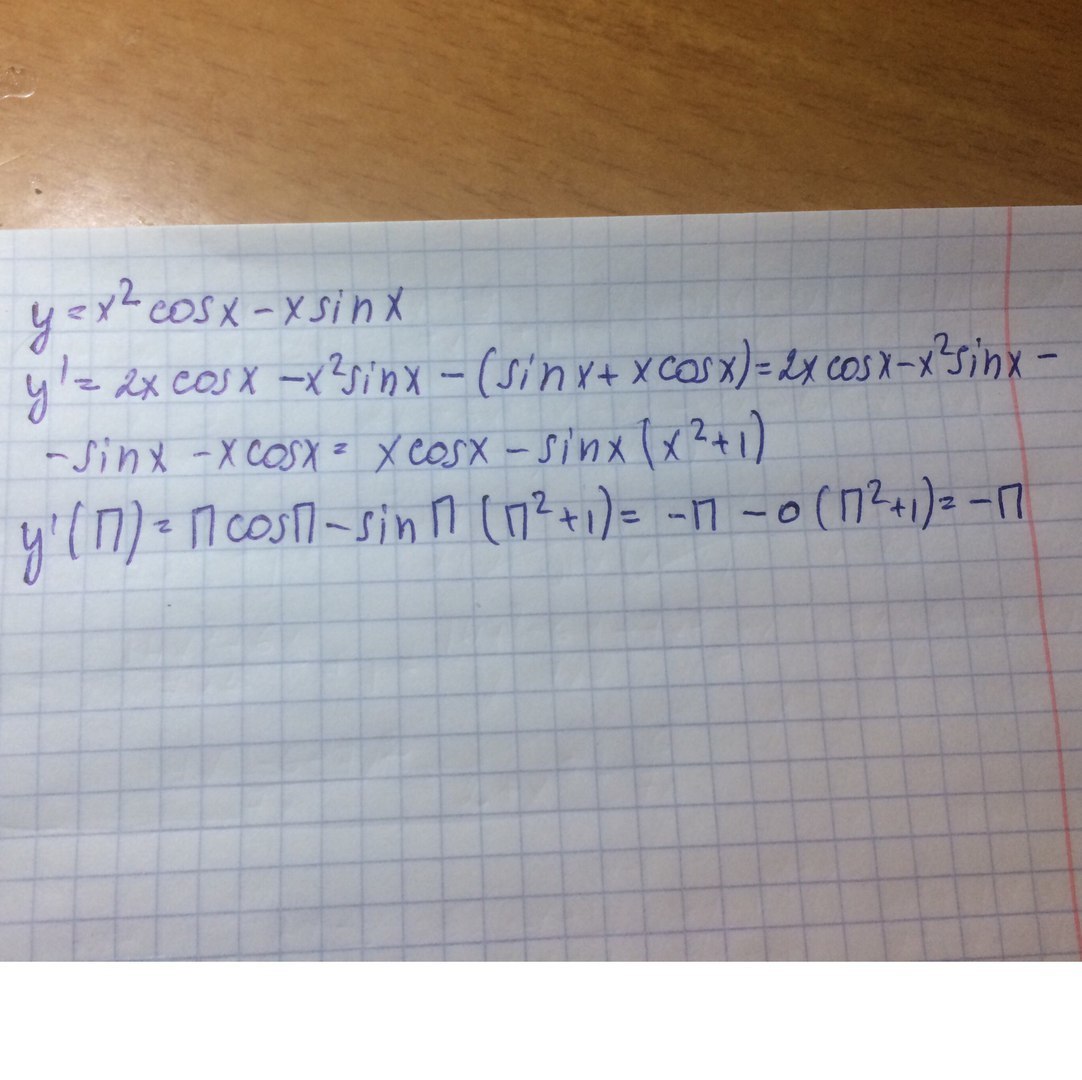 y = x² cosx - x sin x
y' = 2x cosx - x² sinx - (sin x + x cosx) = 2x cosx - x² sinx -
- sinx - x cosx = x cosx - sinx (x² + 1)
y'(П) = П cosП - sin П (П² + 1) = -П - 0 (П² + 1) = -П